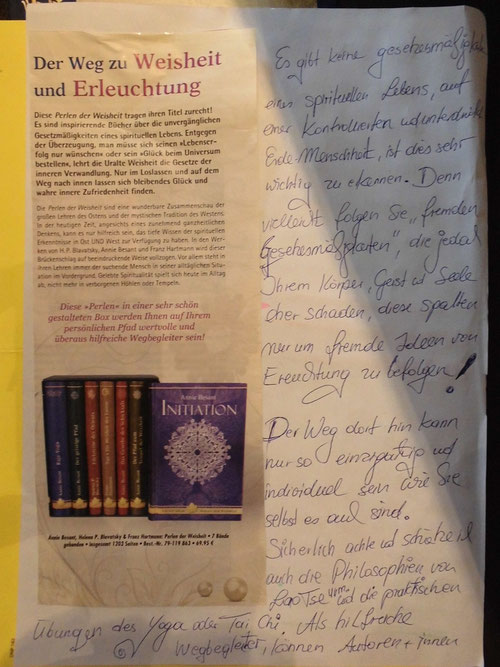 Der Weg zu Weisheit
und Erleuchtung
Diese Perlen der Weisheit tragen ihren Titel zurecht!
Es sind inspirierende Bücher über die unvergänglichen
Gesetzmäßigkeiten eines spirituellen Lebens. Entgegen
der Überzeugung, man müsse sich seinen »Lebenser-
folg nur wünschen« oder sein »Glück beim Universum
bestellen«, lehrt die Uralte Weisheit die Gesetze der
inneren Verwandlung. Nur im Loslassen und auf dem
Weg nach innen lassen sich bleibendes Glück und
wahre innere Zufriedenheit finden.
Die Perlen der Weisheit sind eine wunderbare Zusammenfassung
der großen Lehren des Ostens und der mystischen Tradition des Westens.
In der heutigen Zeit, angesichts eines zunehmend ganzheitlichen
Denkens, kann es nur hilfreich sein, das tiefe Wissen der spirituellen
Erkenntnisse in Ost UND West zur Verfügung zu haben. In den Wer-
ken von H.P. Blavatsky, Annie Besant und Franz Hartmann wird dieser
Brückenschlag auf beeindruckende Weise vollzogen. Vor allem steht in
ihren Lehren immer der suchende Mensch in seiner alltäglichen Situa-
tion im Vordergrund. Gelebte Spiritualität spielt sich heute im Alltag
ab, nicht mehr in verborgenen Höhlen oder Tempeln.
Diese »Perlen« in einer sehr schön
gestalteten Box werden Ihnen auf Ihrem
persönlichen Pfad wertvolle und
überaus hilfreiche Wegbegleiter sein!
Annie Besant
INITIATION
Annie Besant, Helena P. Blavatsky & Franz Hartmann: Perlen der Weisheit • 7 Bände
gebunden • insgesamt 1202 Seiten • Best.-Nr. 79-119 863 • 69,95 €
Es gibt keine gesetzesmäßigkeit
eines spirituellen Lebens, auf
einer Kontrollierten und unterdrückten
Erde-Menschheit, ist dies sehr
wichtig zu erkennen. Denn
vielleicht folgen Sie „fremden
Gesetzesmäßigkeiten", die jedoch
Ihrem Körper, Geist und Seele
eher schaden, diese spalten
nur um fremde Ideen von
Erleuchtung zu befolgen!
Der Weg dort hin kann
nur so einzigartig und
individual sein wie Sie
selbst es auch sind.
Sicherlich achte und schätze ich
auch die Philosophien von
Lao Tse uvm. und die praktischen
Übungen des Yoga oder Tai Chi. Als hilfreiche
Wegbegleiter, können Autoren + innen